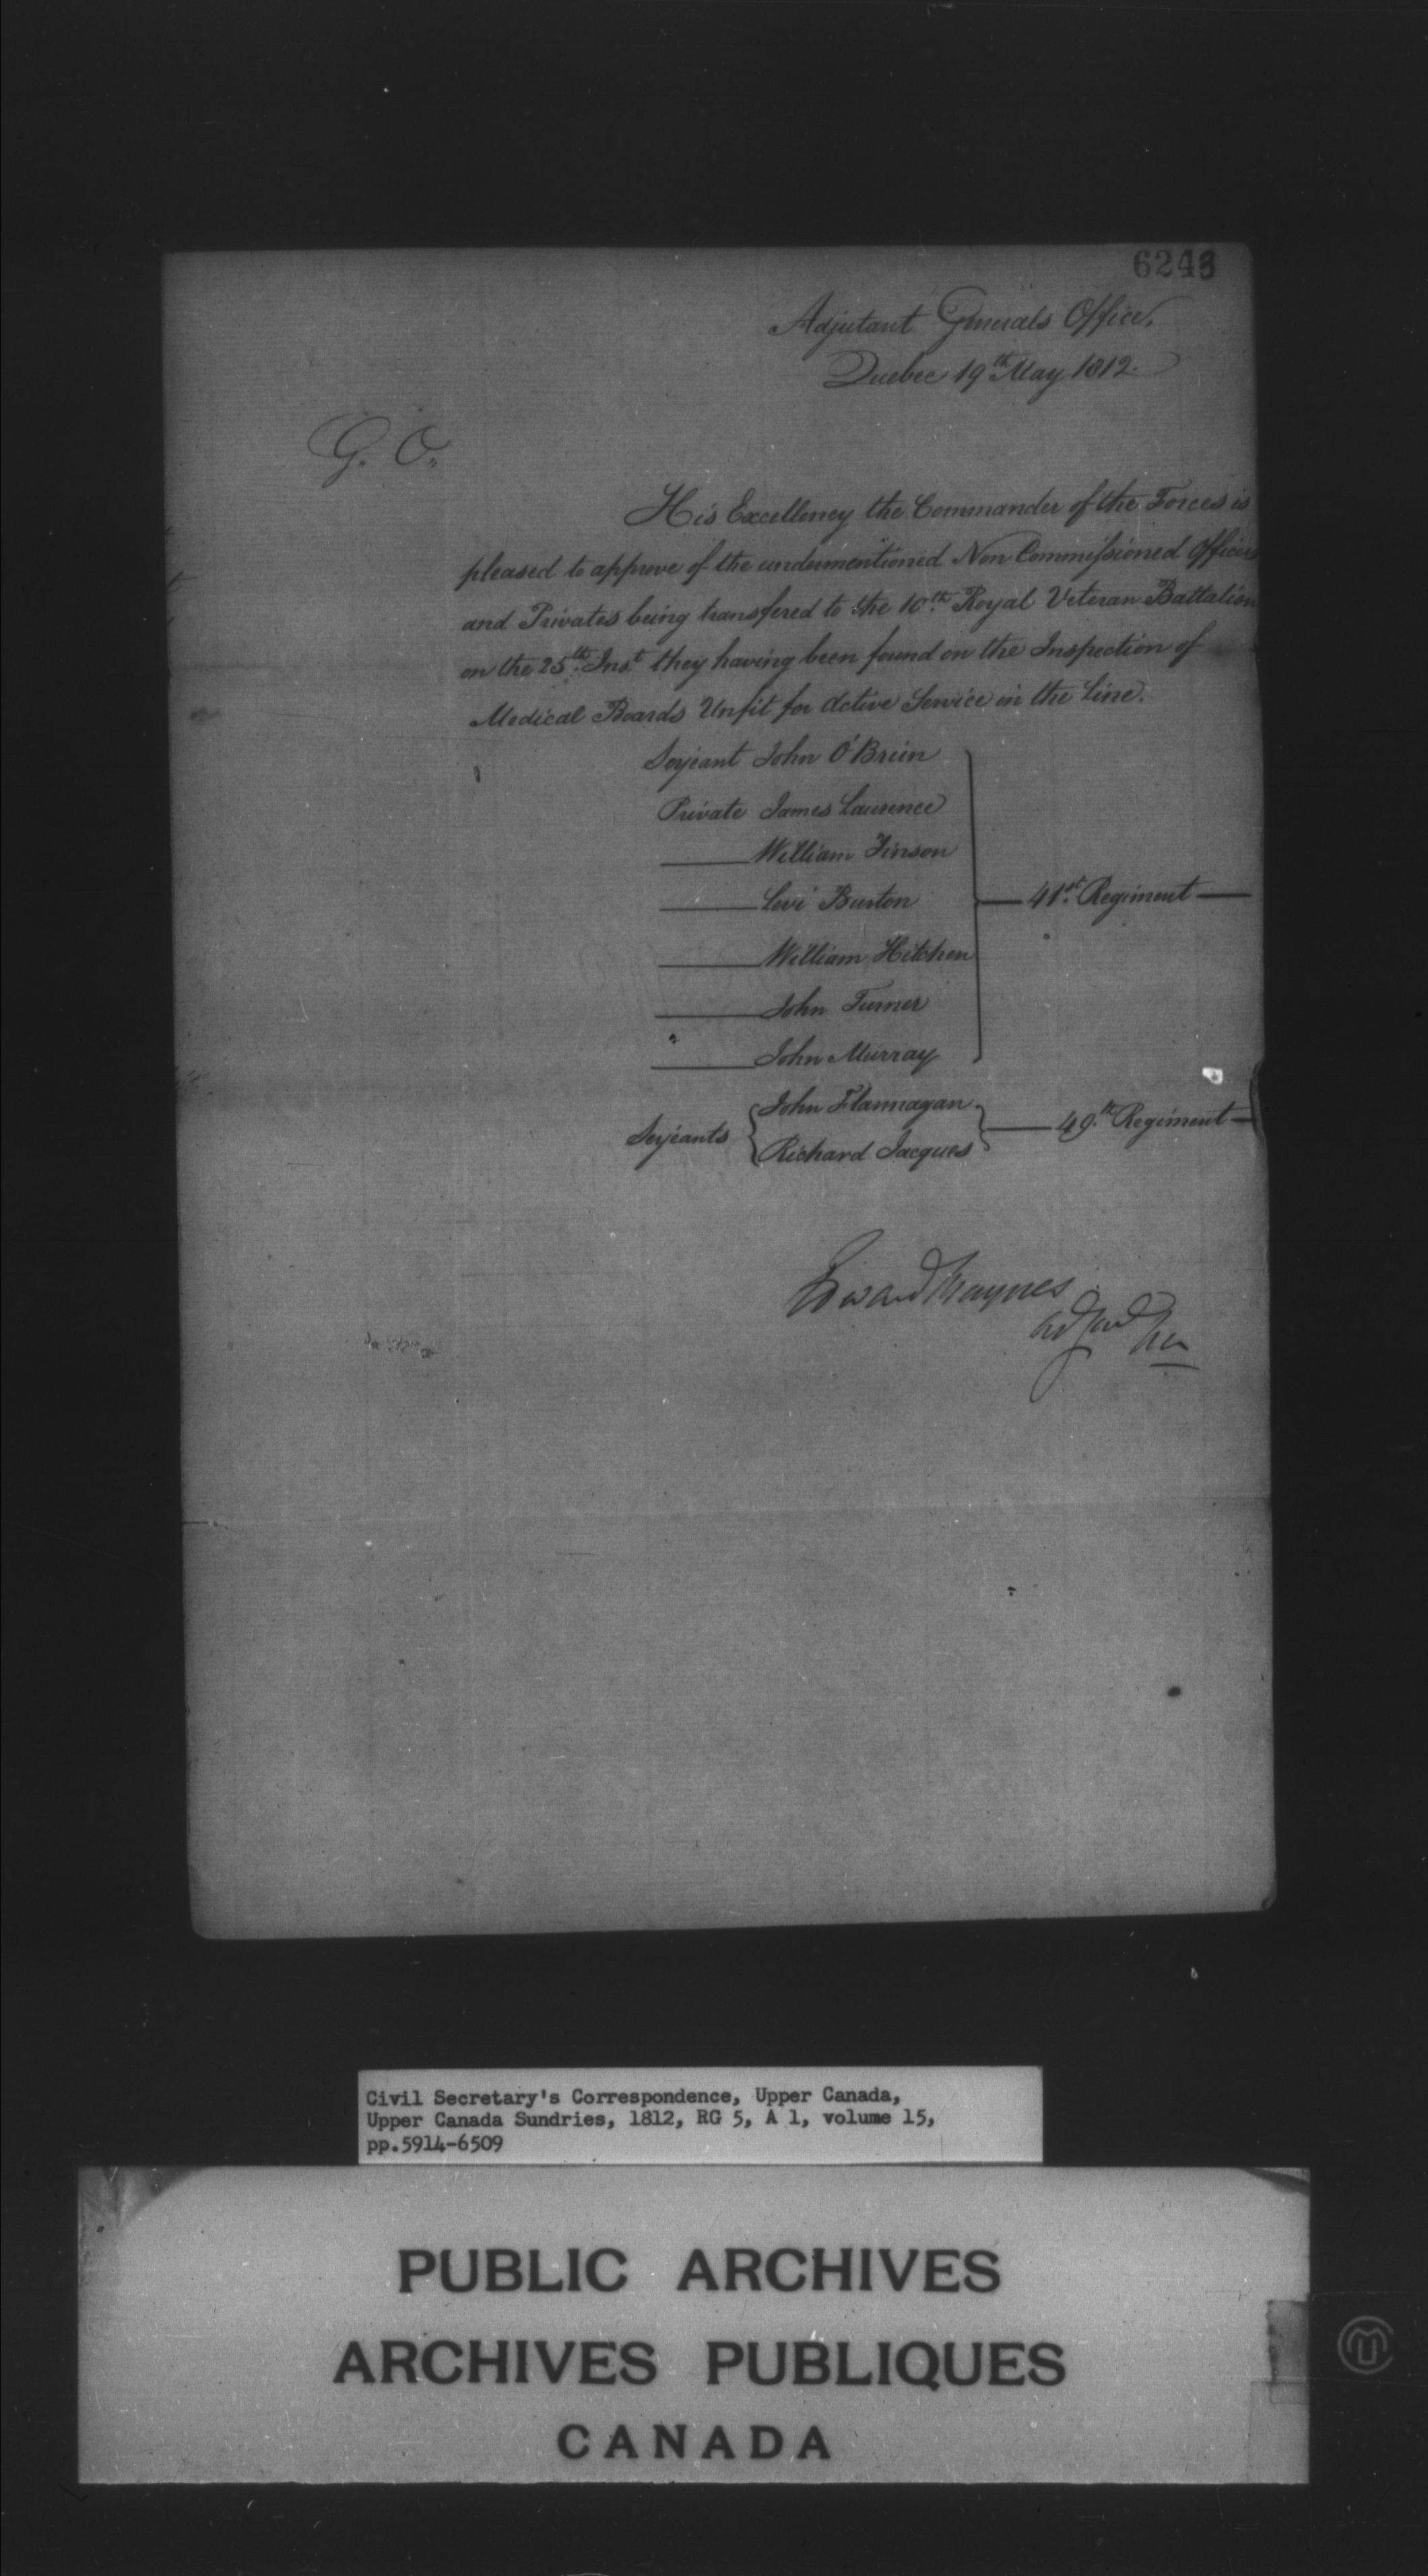 6243
Adjutant Generals Office,
Quebec 19th May 1812.
G. O.
His Excellency the Commander of the Forces is
pleased to approve of the undermentioned Non Commissioned Officers
and Privates being transfered to the 10th Royal Veteran Battalion
on the 25th Inst they having been found on the Inspection of
Medical Boards Unfit for Active Service in the Line.
Serjeant John O'Brien
Private James Laurence
William Tinson
Levi Burton
41st Regiment
William Hitchen
John Turner
John Murray
John Flannagan
Serjeants
49th Regiment
Richard Jacques
Edward Baynes
Adj Gen
Civil Secretary's Correspondence, Upper Canada,
Upper Canada Sundries, 1812, RG 5, A 1, volume 15,
pp.5914-6509
PUBLIC ARCHIVES
ARCHIVES PUBLIQUES
CANADA